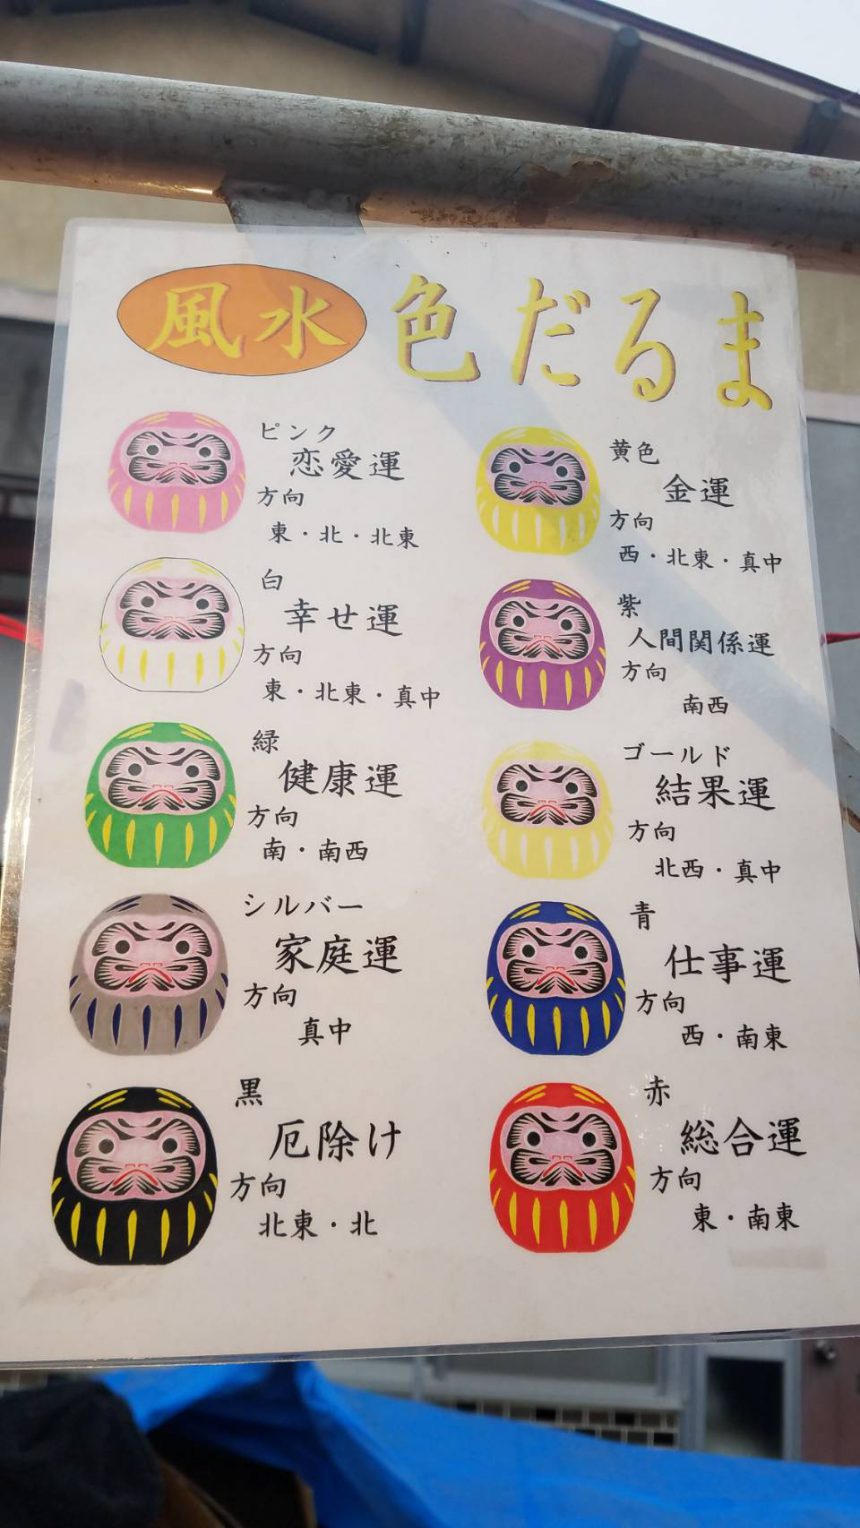 風水 色だるま
ピンク
恋愛運
方向
東・北・北東
白
幸せ運
方向
東・北東・真中
緑
健康運
方向
南・南西
シルバー
家庭運
方向
真中
黒
厄除け
方向
北東・北
黄色
金運
方向
西・北東・真中
紫
人間関係運
方向
南西
ゴールド
結果運
方向
北西・真中
青
仕事運
方向
西・南東
赤
総合運
方向
東・南東